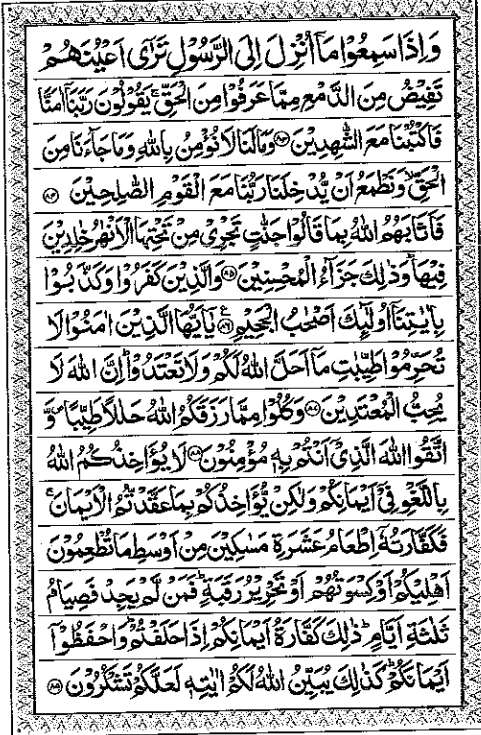 وَاِذَا سَمِعُوْا مَاۤ اُنْزِلَ اِلَى الرَّسُوْلِ تَرٰۤى اَعْيُنَهُمْ
تَفِيْضُ مِنَ الدَّمْعِ مِمَّا عَرَفُوْا مِنَ الْحَقِّ ۚ يَقُوْلُوْنَ رَبَّنَاۤ اٰمَنَّا
فَاكْتُبْنَا مَعَ الشّٰهِدِيْنَ ﴿۸۳﴾ وَمَا لَنَا لَا نُؤْمِنُ بِاللّٰهِ وَمَا جَآءَنَا مِنَ
الْحَقِّ ۙ وَنَطْمَعُ اَنْ يُّدْخِلَنَا رَبُّنَا مَعَ الْقَوْمِ الصّٰلِحِيْنَ ﴿۸۴﴾
فَاَثَابَهُمُ اللّٰهُ بِمَا قَالُوْا جَنّٰتٍ تَجْرِيْ مِنْ تَحْتِهَا الْاَنْهٰرُ خٰلِدِيْنَ
فِيْهَا ؕ وَذٰلِكَ جَزَآءُ الْمُحْسِنِيْنَ ﴿۸۵﴾ وَالَّذِيْنَ كَفَرُوْا وَكَذَّبُوْا
بِاٰيٰتِنَاۤ اُولٰٓئِكَ اَصْحٰبُ الْجَحِيْمِ ﴿۸۶﴾ يٰۤاَيُّهَا الَّذِيْنَ اٰمَنُوْا لَا
تُحَرِّمُوْا طَيِّبٰتِ مَاۤ اَحَلَّ اللّٰهُ لَكُمْ وَلَا تَعْتَدُوْا ؕ اِنَّ اللّٰهَ لَا
يُحِبُّ الْمُعْتَدِيْنَ ﴿۸۷﴾ وَكُلُوْا مِمَّا رَزَقَكُمُ اللّٰهُ حَلٰلًا طَيِّبًا ۪ وَّ
اتَّقُوا اللّٰهَ الَّذِيْۤ اَنْتُمْ بِهٖ مُؤْمِنُوْنَ ﴿۸۸﴾ لَا يُؤَاخِذُكُمُ اللّٰهُ
بِاللَّغْوِ فِيْۤ اَيْمَانِكُمْ وَلٰكِنْ يُّؤَاخِذُكُمْ بِمَا عَقَّدْتُّمُ الْاَيْمَانَ ۚ
فَكَفَّارَتُهٗۤ اِطْعَامُ عَشَرَةِ مَسٰكِيْنَ مِنْ اَوْسَطِ مَا تُطْعِمُوْنَ
اَهْلِيْكُمْ اَوْ كِسْوَتُهُمْ اَوْ تَحْرِيْرُ رَقَبَةٍ ؕ فَمَنْ لَّمْ يَجِدْ فَصِيَامُ
ثَلٰثَةِ اَيَّامٍ ؕ ذٰلِكَ كَفَّارَةُ اَيْمَانِكُمْ اِذَا حَلَفْتُمْ ؕ وَاحْفَظُوْۤا
اَيْمَانَكُمْ ؕ كَذٰلِكَ يُبَيِّنُ اللّٰهُ لَكُمْ اٰيٰتِهٖ لَعَلَّكُمْ تَشْكُرُوْنَ ﴿۸۹﴾